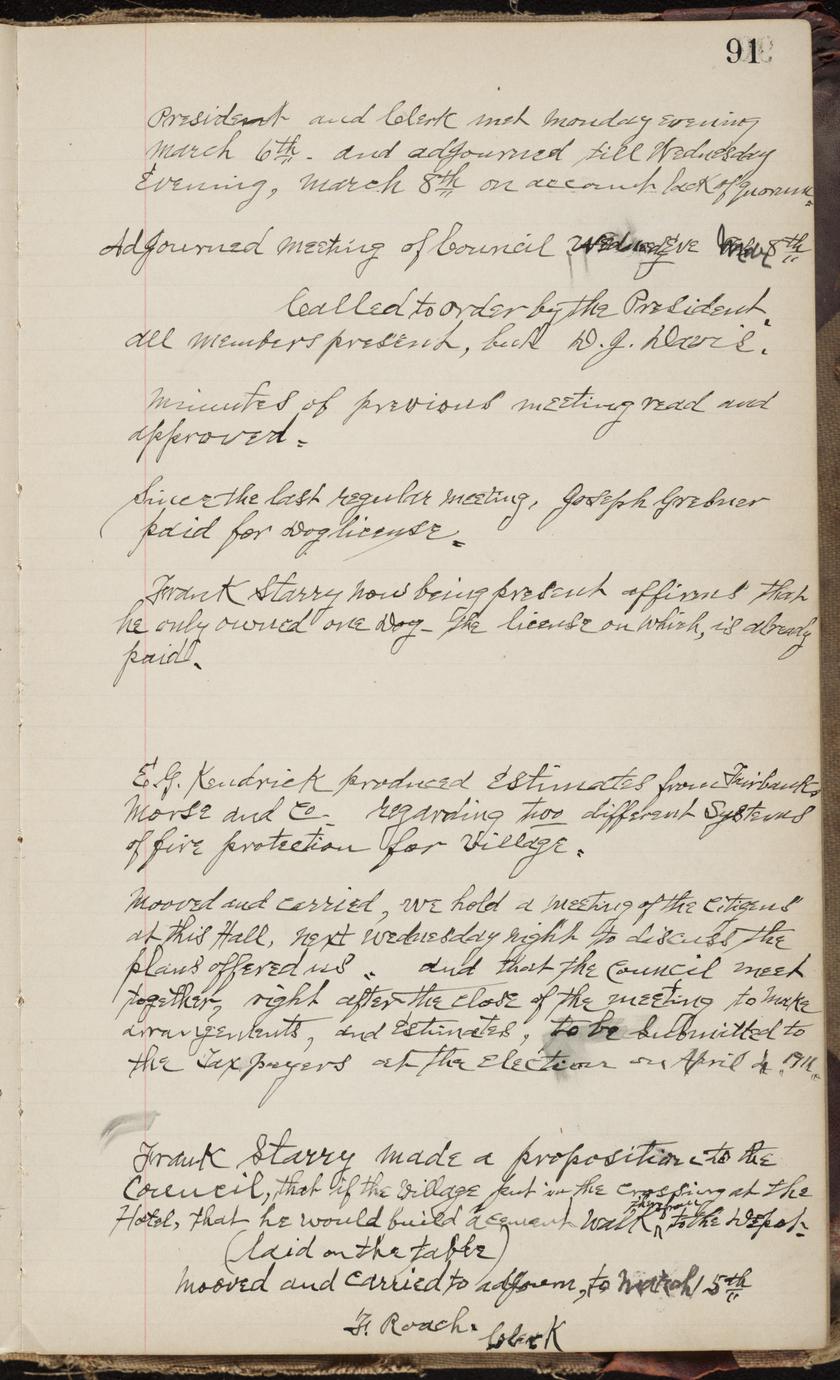 91
President and Clerk met Monday evening
March 6th. and adjourned till Wednesday
Evening, March 8th on account lack of quorum.
Adjourned meeting of Council Wednes Eve Mar 8th
Called to order by the President.
all members present, but D. J. Davis.
Minutes of previous meeting read and
approved.
Since the last regular meeting, Joseph Grebner
paid for Dog license.
Frank Starry now being present affirms that
he only owned one Dog - the license on which, is already
paid.
E. G. Kendrick produced Estimates from Fairbanks
Morse and Co. regarding two different Systems
of fire protection for Village.
Mooved and carried, we hold a meeting of the citizens
at this Hall, next Wednesday night to discuss the
plans offered us. and that the Council meet
together, right after the close of the meeting to make
arrangements, and Estimates, to be Submitted to
the Tax payers at the Election on April
Frank Starry made a proposition to the
Council, that if the Village put in the crossing at the
Hotel, that he would build a cement Walk to the Depot.
(laid on the table)
Mooved and carried to adjourn, to March 15th
F. Roach. Clerk